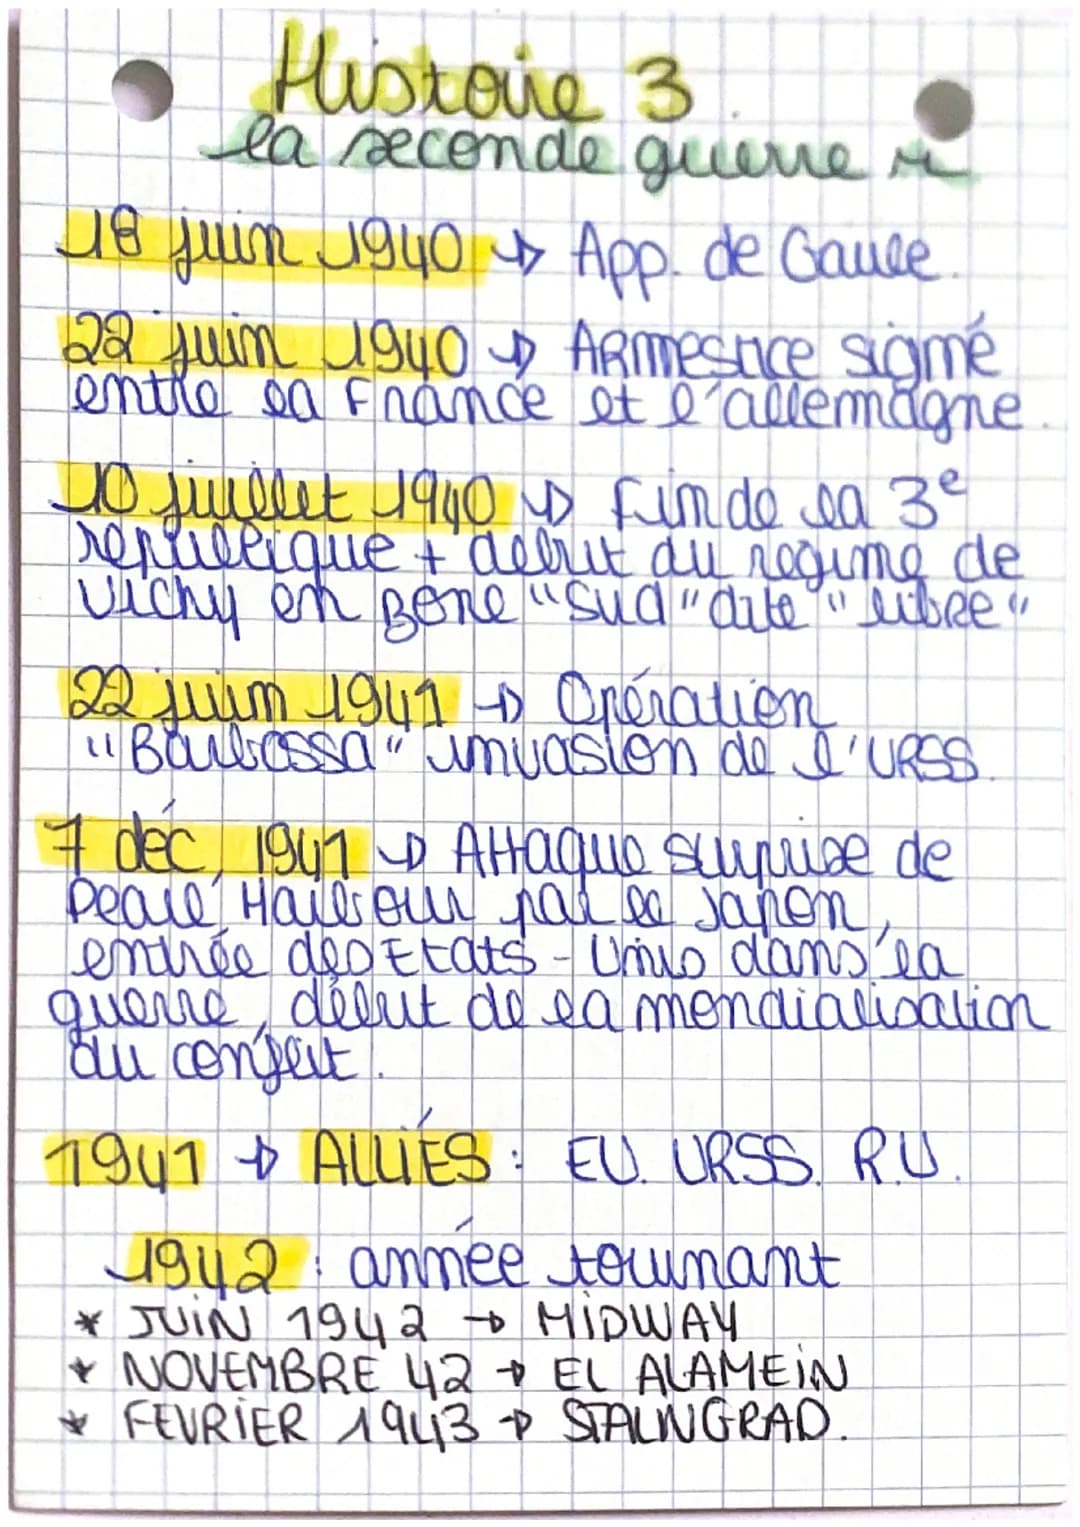 Histoire 3
la seconde guerre M
18 juin 1940 → App. de Gaulle.
22 juin 1940 → ARmestice signé
entre la France et l'allemagne.
10 juillet 1940 → Fin de la 3e
republique + debut du regime de
Vichy en zone "Sud" dite "libre"
22 juin 1941 → Opération
"Barbossa" invasion de l'URSS.
7 déc, 1941 → Attaque surprise de
Pearl Harbour par le Japon,
entrée des Etats-Unis dans la
guerre, début de la mondialisation
du conflit.
1941 → ALLIÉS : EU. URSS. R.U.
1942 : année tournant
* JUIN 1942 → MIDWAY
* NOVEMBRE 42 → EL ALAMEIN
* FEVRIER 1943 → STALINGRAD.